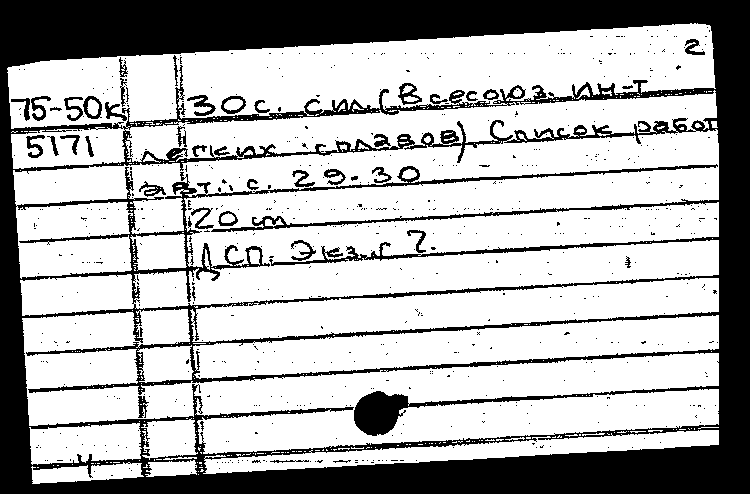 2
75-50к 30 с. с ил. (Всесоюз. ин-т
5171 легких сплавов). Список работ
авт.: с. 29-30
20 см.
ДСП. Экз. 7.
4